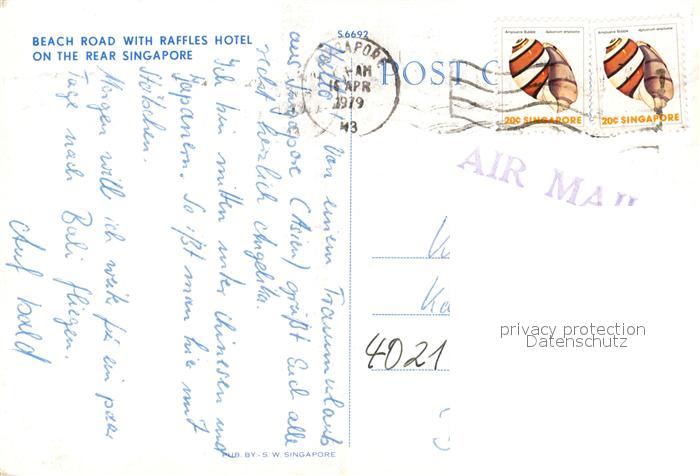 BEACH ROAD WITH RAFFLES HOTEL
ON THE REAR SINGAPORE
S.6692
POST C
GAPOR
AM
APR
1979
Ampulla Bubble
20c SINGAPORE
20c SINGAPORE
AIR MAIL
Hallo!
Von einem Traumurlaub
aus Singapore (Asien) grüßt Euch alle
recht herzlich Angelika.
Ich bin mitten unter Chinesen und
Japanern. So ißt man hier mit
Stöbchen.
Morgen will ich weiter für ein paar
Tage nach Bali fliegen.
Auf bald
4021
privacy protection
Datenschutz
UB. BY.- S. W. SINGAPORE